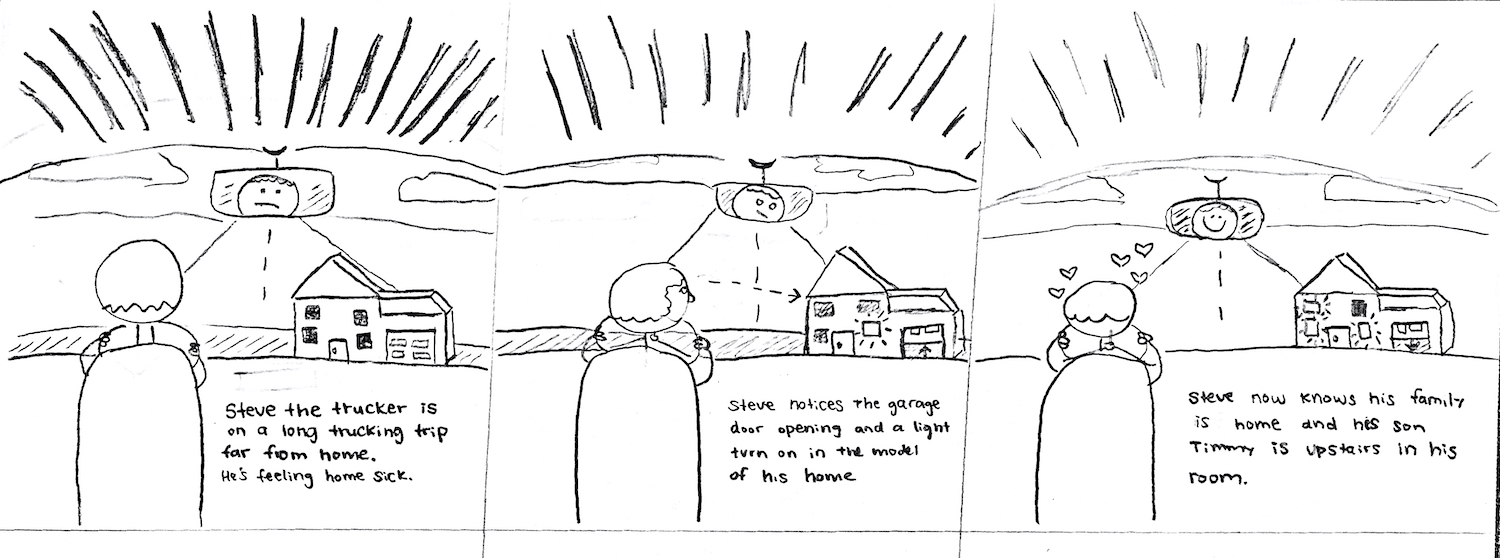 Steve the trucker is
on a long trucking trip
far from home.
He's feeling home sick.
Steve notices the garage
door opening and a light
turn on in the model
of his home
Steve now knows his family
is home and his son
Timmy is upstairs in his
room.